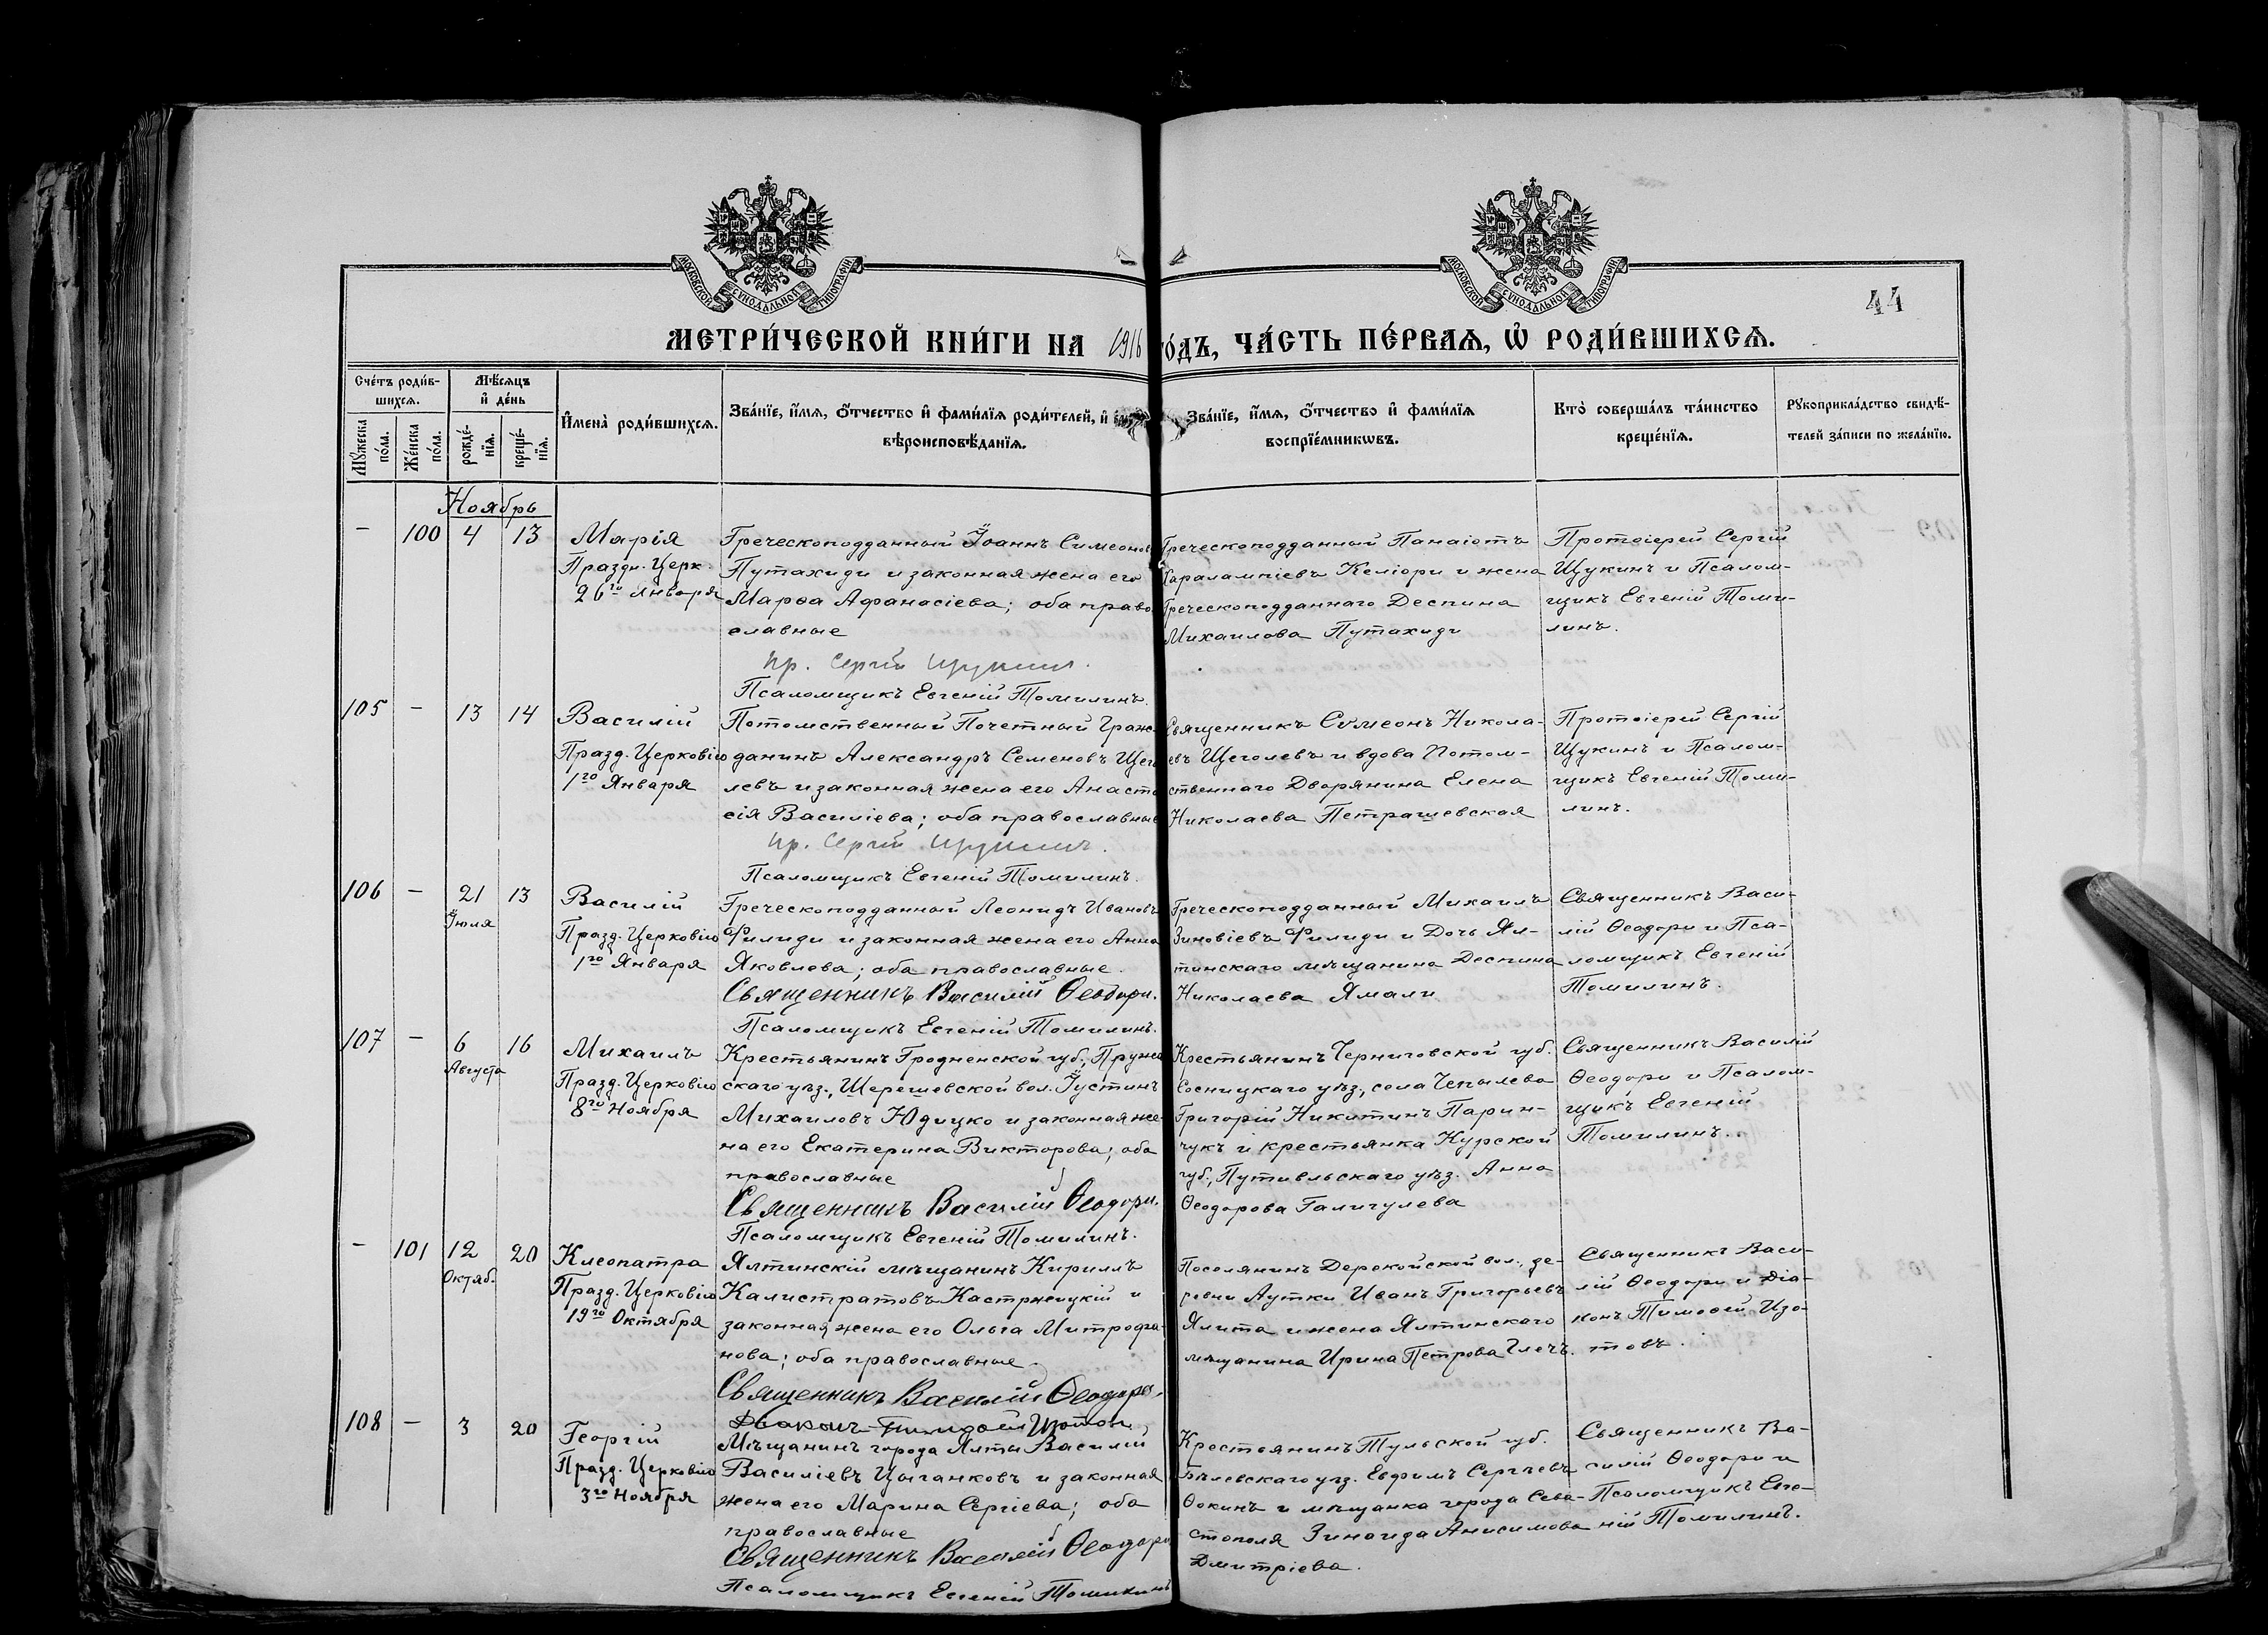 МОСКОВСКОЙ СѴНОДАЛЬНОЙ ТИПОГРАФІИ
МОСКОВСКОЙ СѴНОДАЛЬНОЙ ТИПОГРАФІИ
44
МЕТРИ́ЧЕСКОЙ КНИ́ГИ НА 1916 ГО́ДЪ, ЧА́СТЬ ПЕ́РВАѦ, Ѡ҆ РОДИ́ВШИХСѦ.
Сче́тъ роди́в-
шихсѧ.
Мꙋ́жеска по́ла.
Же́нска по́ла.
Мѣ́сѧцъ
и҆ де́нь
рожде́-
нїѧ.
креще́-
нїѧ.
И҆мена̀ роди́вшихсѧ.
Зва́нїе, и҆́мѧ, ѻ҆́тчество и҆ фами́лїѧ роди́телей, и҆
вѣроисповѣ́данїѧ.
Зва́нїе, и҆́мѧ, ѻ҆́тчество и҆ фами́лїѧ
воспрїе́мникѡвъ.
Кто̀ соверша́лъ та́инство
креще́нїѧ.
Рꙋкоприкла́дство свидѣ́-
телей за́писи по жела́нїю.
Ноябрь
– 100 4 13
Марія
Праздн. Церк.
26го Января
Греческоподданный Іоаннъ Симеонов
Путахиди и законная жена его
Марѳа Афанасіева; оба право
славные
Пр. Сергій Щукинъ.
Псаломщикъ Евгеній Томилинъ.
Греческоподданный Панаіотъ
Харалампіевъ Келіори и жена
Греческоподданнаго Деспина
Михаилова Путахиди
Протоіерей Сергій
Щукинъ и Псалом-
щикъ Евгеній Томи-
линъ.
105 – 13 14
Василій
Празд. Церковію
1го Января
Потомственный Почетный Граж-
данинъ Александръ Семеновъ Щего
левъ и законная жена его Анаста
сія Василіева; оба православные
Пр. Сергій Щукинъ.
Псаломщикъ Евгеній Томилинъ.
Священникъ Сѵмеонъ Никола-
евъ Щеголевъ и вдова Потом-
ственнаго Дворянина Елена
Николаева Петрашевская
Протоіерей Сергій
Щукинъ и Псалом-
щикъ Евгеній Томи-
линъ.
106 – 21 13
Іюля
Василій
Празд. Церковію
1го Января
Греческоподданный Леонидъ Ивановъ
Филиди и законная жена его Анна
Яковлева; оба православные.
Священникъ Василій Ѳеодори.
Псаломщикъ Евгеній Томилинъ.
Греческоподданный Михаилъ
Зиновіевъ Филиди и Дочь Ял-
тинскаго мѣщанина Деспина
Николаева Ямали
Священникъ Васи-
лій Ѳеодори и Пса-
ломщикъ Евгеній
Томилинъ.
107 – 6 16
Августа
Михаилъ
Празд. Церковію
8го Ноября
Крестьянинъ Гродненской губ., Пружа
скаго уѣз., Шерешевской вол. Іустинъ
Михаиловъ Юдицко и законная же
на его Екатерина Викторова; оба
православные
Священникъ Василій Ѳеодори.
Псаломщикъ Евгеній Томилинъ.
Крестьянинъ Черниговской губ.
Сосницкаго уѣз., села Чепылева
Григорій Никитинъ Парин-
чукъ и крестьянка Курской
губ., Путивльскаго уѣз. Анна
Ѳеодорова Галигулева
Священникъ Василій
Ѳеодори и Псалом-
щикъ Евгеній
Томилинъ.
– 101 12 20
Октяб.
Клеопатра
Празд. Церковію
19го Октября
Ялтинскій мѣщанинъ Кириллъ
Калистратовъ Кастржицкій и
законная жена его Ольга Митрофа-
нова; оба православные.
Священникъ Василій Ѳеодори.
Діаконъ Тимоѳей Изотов
Поселянинъ Дерекойской вол., де-
ревни Аутки Иванъ Григорьевъ
Ялита и жена Ялтинскаго
мѣщанина Ирина Петрова Глечъ.
Священникъ Васи-
лій Ѳеодори и Діа-
конъ Тимоѳей Изо-
товъ.
108 – 3 20
Георгій
Празд. Церковію
3го Ноября
Мѣщанинъ города Ялты Василій
Василіевъ Цыганковъ и законная
жена его Марина Сергіева; оба
православные
Священникъ Василій Ѳеодори
Псаломщикъ Евгеній Томилинъ
Крестьянинъ Тульской губ.
Бѣлевскаго уѣз. Евфимъ Сергѣевъ
Ѳокинъ и мѣщанка города Сева-
стополя Зинаида Анисимова
Дмитріева.
Священникъ Ва-
силій Ѳеодори и
Псаломщикъ Евге-
ній Томилинъ.